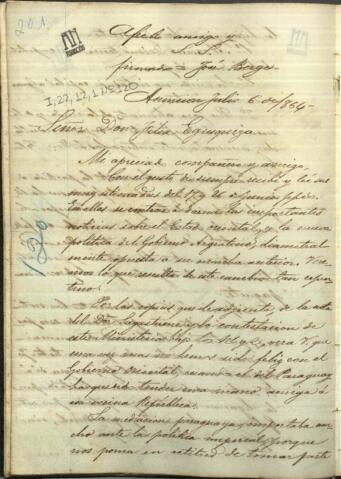 201
Afecto amigo y
S. S.
firmado = José Berges
Asuncion Julio 6 de 1864
I,22,12,1 Nº 120
Señor Don Félix Egusquiza
Mi apreciado compañero y amigo
Con el gusto de siempre recibí y leí sus
muy estimadas del 17 y 26 de Junio ppdo.
En ellas se entra á darme las importantes
noticias sobre el Estado Oriental, y la nueva
política del Gobierno Argentino, diametral
mente opuesta á su marcha anterior. Ve
remos lo que resulte de este cambio tan repen
tino.
Por las copias que le adjunto, de la nota
del Dor
y la contestacion de
este Ministerio
verá V. que
una vez mas no hemos sido feliz con el
Gobierno Oriental, cuando el del Paraguay
ha querido tender una mano amiga á
una vecina República.
La mediacion paraguaya, importaba mu
cho ante la política imperial, porque
nos ponia en actitud de tomar parte